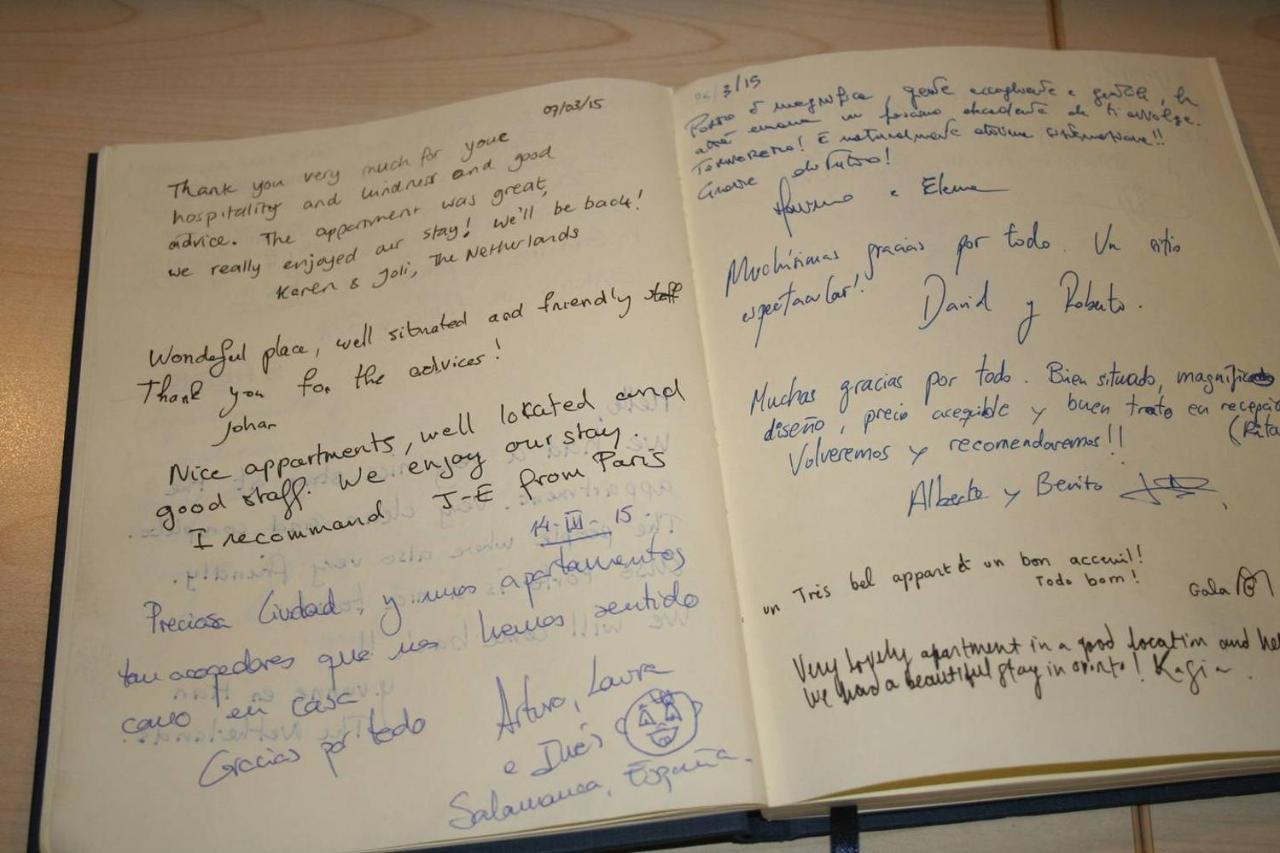 07/03/15
Thank you very much for youe
hospitality and kindness and good
advice. The appartment was great,
we really enjoyed our stay! We'll be back!
Karen & Joli, The Netherlands
Wondeful place, well situated and friendly staff
Thank you for the advices!
Johan
Nice appartments, well located and
good staff. We enjoy our stay.
I recommand J-E from Paris
14-III-15
Preciosa Ciudad, y unos apartamentos
tan acogedores que nos hemos sentido
como en casa
Gracias por todo
Arturo, Laura
e Inés
Salamanca, España.
/3/15
Porto è magnifica, gente accogliente e gentile, la
città emana un fascino decadente che ti avvolge.
Torneremo! E naturalmente ottima sistemazione!!
Grazie di tutto!
e Elena
Muchísimas gracias por todo. Un sitio
espectacular!
David y Roberto.
Muchas gracias por todo. Bien situado, magnífico
diseño, precio acegible y buen trato en recepció
(Rita
Volveremos y recomendaremos!!
Alberto y Benito
un Très bel appart et un bon acceuil!
Todo bom!
Gala
Very lovely apartment in a good location and hel
We had a beautiful stay in oporto! Kasia